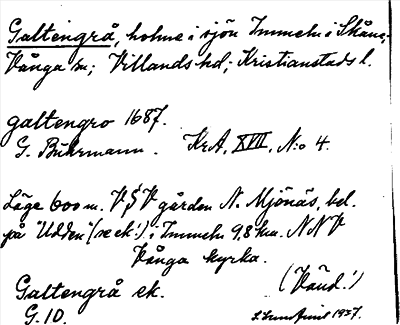 Galtengrå, holme i sjön Immeln i Skåne;
Vånga sn; Villands hd; Kristianstads l.
galtengro 1687.
G. Buhrmann. KrA, XVII, N:o 4.
Läge 600 m. VSV gården N. Mjönäs, bel.
på "Udden" (se ek!) i Immeln 9,8 km. NNV
Vånga kyrka.
Galtengrå ek. (Vänd!)
G. 10. 1927.